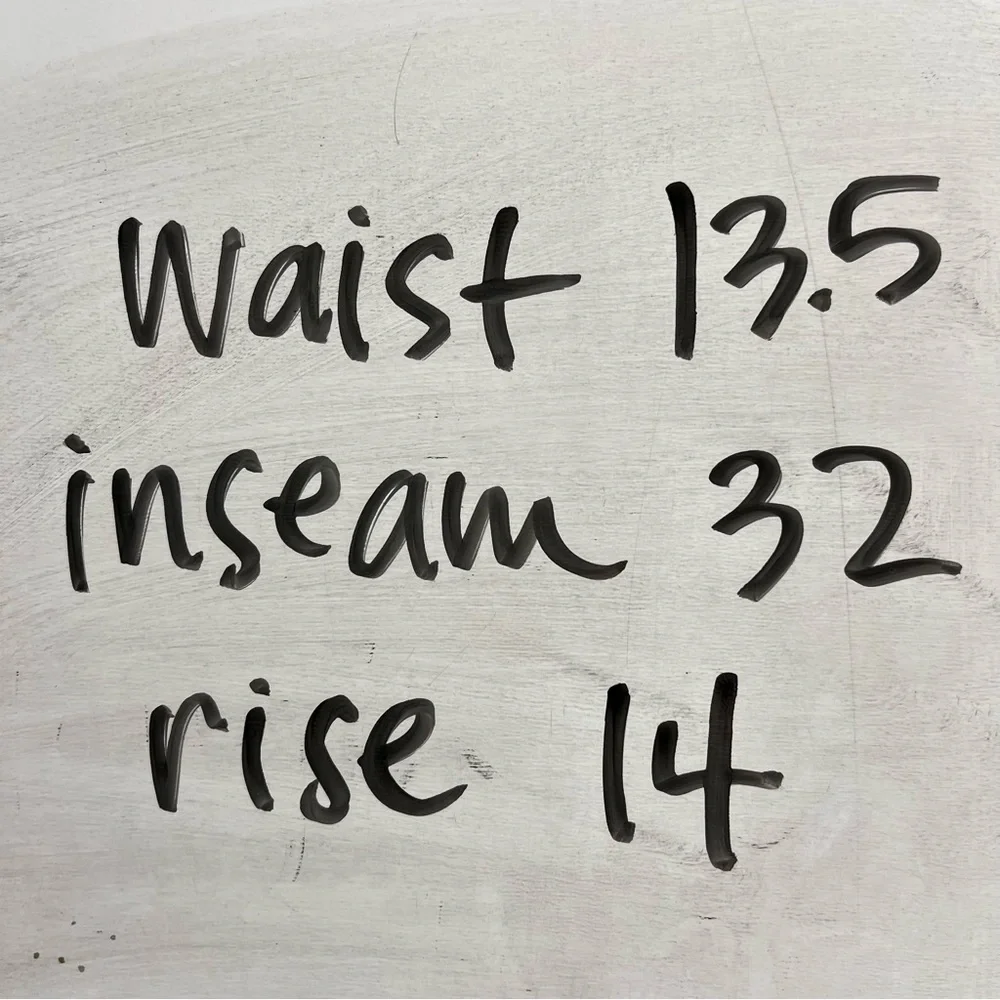 waist 13.5
inseam 32
rise 14